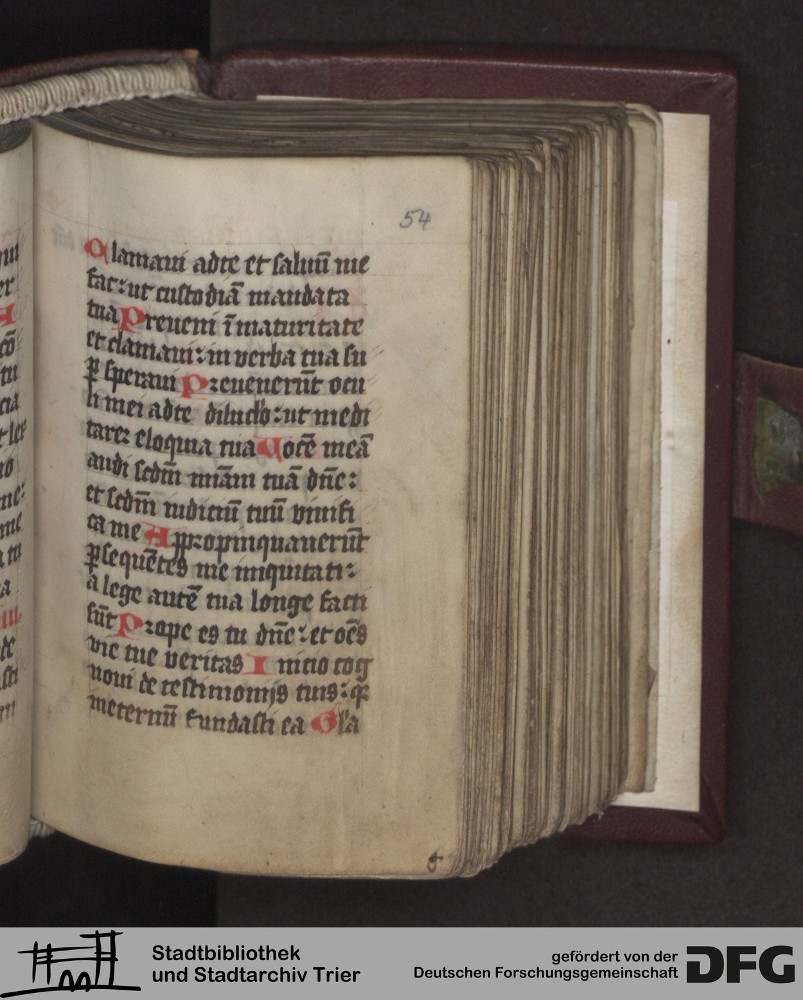 54
Clamaui adte et saluū me
fac: ut custodiā mandata
tua Preueni ī maturitate
et clamaui: in verba tua su
ꝑ speraui Preuenerūt ocu
li mei adte diluclo: ut medi
tarer eloquia tua Uocē meā
audi scdm miām tuā dn̄e:
et scdm iudiciū tuū viuifi
ca me Appropinquauerūt
ꝑsequētes me iniquitati:
a lege autē tua longe facti
sūt Prope es tu dn̄e: et oēs
vie tue veritas Inicio cog
noui de testimonijs tuis: qꝛ
ineternū fundasti ea Gla
Stadtbibliothek
und Stadtarchiv Trier
gefördert von der
Deutschen Forschungsgemeinschaft
DFG